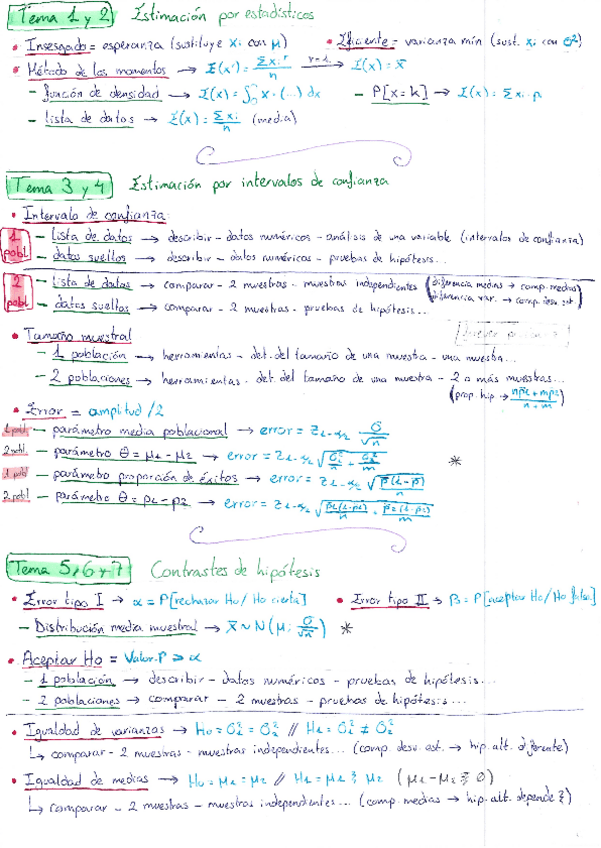 Tema 1 y 2 Estimación por estadísticos
• Insesgado = esperanza (sustituye xi con μ) • Eficiente = varianza mín (sust. xi con σ²)
• Método de los momentos → E(x^r) = Σxi^r/n r=1→ E(x) = x̄
- función de densidad → E(x) = ∫ x · (...) dx - P[x=k] → E(x) = Σxi·p
- lista de datos → E(x) = Σxi/n (media)
Tema 3 y 4 Estimación por intervalos de confianza
• Intervalo de confianza:
1 pobl - lista de datos → describir - datos numéricos - análisis de una variable (intervalos de confianza)
- datos sueltos → describir - datos numéricos - pruebas de hipótesis...
2 pobl - lista de datos → comparar - 2 muestras - muestras independientes (diferencia medias → comp. medias)
(diferencia var. → comp. desv. est.)
- datos sueltos → comparar - 2 muestras - pruebas de hipótesis...
• Tamaño muestral
- 1 población → herramientas - det. del tamaño de una muestra - una muestra...
- 2 poblaciones → herramientas - det. del tamaño de una muestra - 2 o más muestras...
(prop. hip → (np̂1 + mp̂2)/(n + m))
• Error = amplitud/2
1 pobl - parámetro media poblacional → error = z1-α/2 σ/√n
2 pobl - parámetro θ = μ1 - μ2 → error = z1-α/2 √(σ1²/n + σ2²/m) *
1 pobl - parámetro proporción de éxitos → error = z1-α/2 √(p̂(1-p̂)/n)
2 pobl - parámetro θ = p1 - p2 → error = z1-α/2 √(p̂1(1-p̂1)/n + p̂2(1-p̂2)/m)
Tema 5, 6 y 7 Contrastes de hipótesis
• Error tipo I → α = P[rechazar H0 / H0 cierta] • Error tipo II → β = P[aceptar H0 / H0 falsa]
- Distribución media muestral → x̄ ~ N(μ; σ/√n) *
• Aceptar H0 = Valor-P ≥ α
- 1 población → describir - datos numéricos - pruebas de hipótesis...
- 2 poblaciones → comparar - 2 muestras - pruebas de hipótesis...
• Igualdad de varianzas → H0 = σ1² = σ2² // H1 = σ1² ≠ σ2²
↳ comparar - 2 muestras - muestras independientes... (comp. desv. est. → hip. alt. diferente)
• Igualdad de medias → H0 = μ1 = μ2 // H1 = μ1 ≷ μ2 (μ1 - μ2 ≷ 0)
↳ comparar - 2 muestras - muestras independientes... (comp. medias → hip. alt. depende ≷)